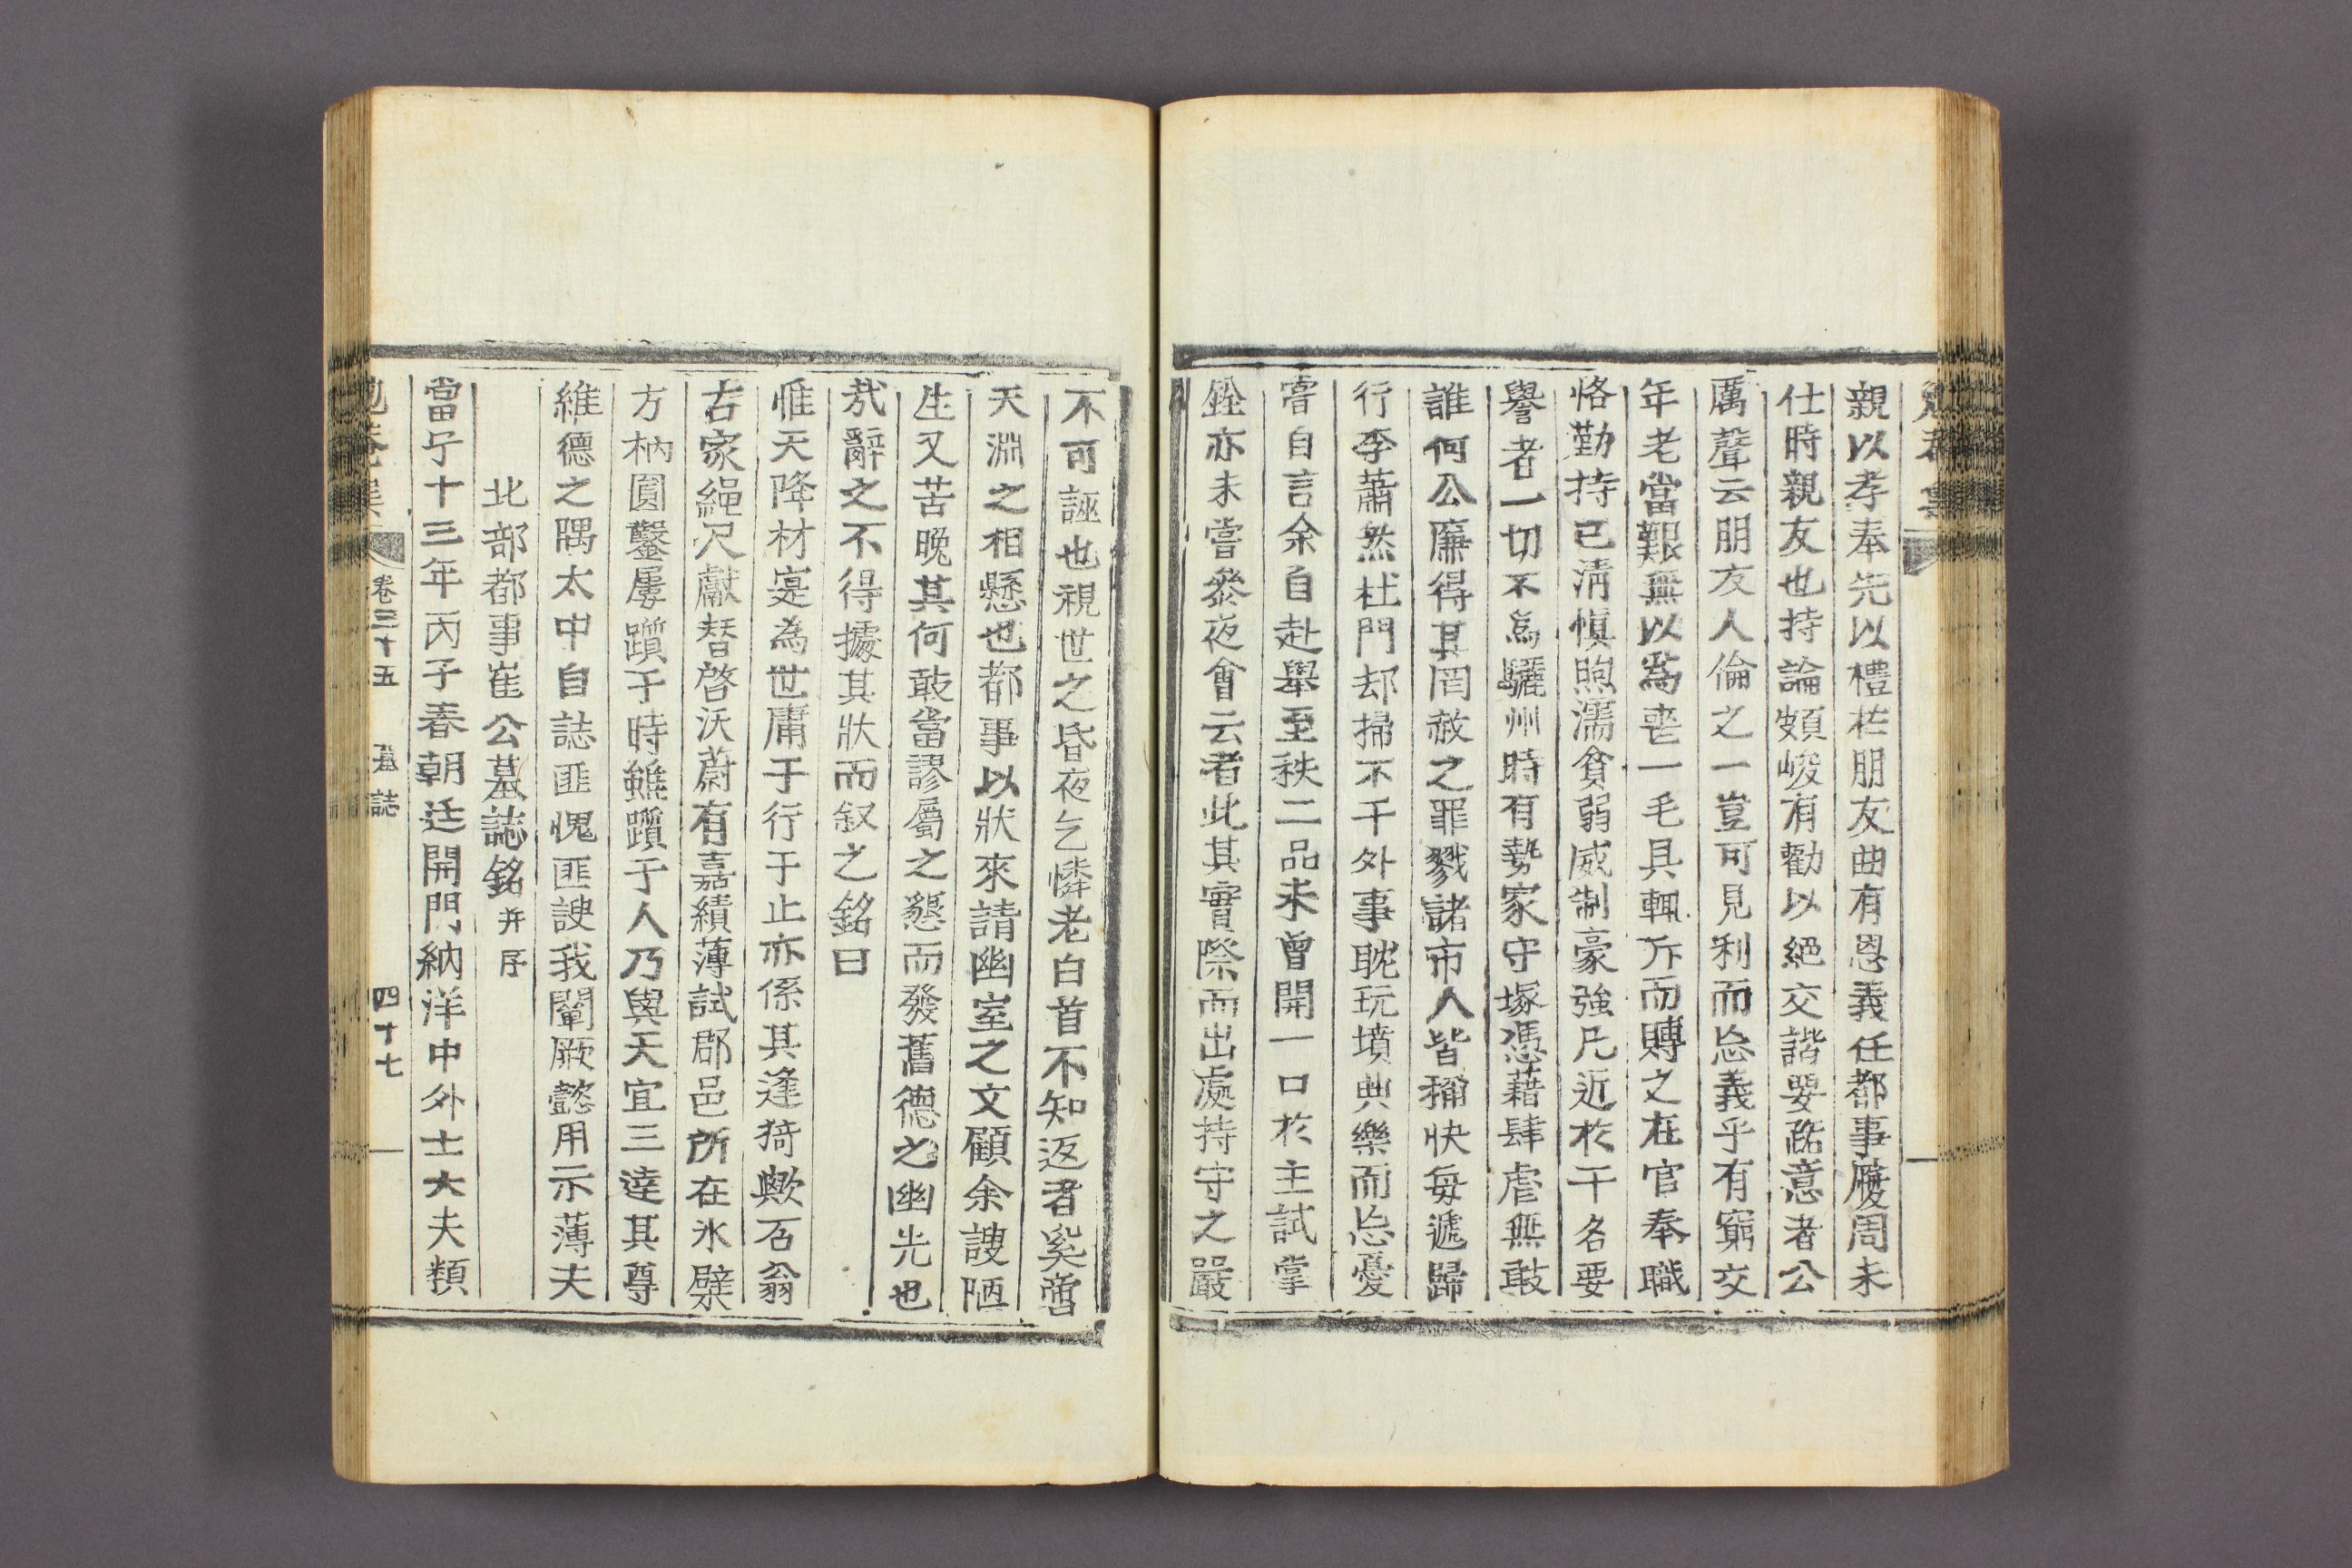 親以孝奉先以禮於朋友曲有恩義任都事慶周未
仕時親友也持論頗峻有勸以絕交諧要路意者公
厲聲云朋友人倫之一豈可見利而忘義乎有窮交
年老當艱無以爲喪一毛具輒斥而賻之在官奉職
恪勤持己淸愼煦濡貧弱威制豪強凡近於干名要
譽者一切不爲驪州時有勢家守塚憑藉肆虐無敢
誰何公廉得其罔赦之罪戮諸市人皆稱快每遞歸
行李蕭然杜門却掃不干外事耽玩墳典樂而忘憂
嘗自言余自赴擧至秩二品未曾開一口於主試掌
銓亦未嘗參夜會云者此其實際而出處持守之嚴
不可誣也視世之昏夜乞憐老白首不知返者奚啻
天淵之相懸也都事以狀來請幽室之文顧余謏陋
生又苦晩其何敢當謬屬之懇而發舊德之幽光也
哉辭之不得據其狀而叙之銘曰
惟天降材寔爲世庸于行于止亦係其逢猗歟石翁
古家繩尺獻替啓沃蔚有嘉績薄試郡邑所在氷檗
方枘圓鑿屢躓于時雖躓于人乃與天宜三達其尊
維德之隅太中自誌匪愧匪諛我闡厥懿用示薄夫
北部都事崔公墓誌銘幷序
當宁十三年丙子春朝廷開門納洋中外士大夫類
勉菴集 卷三十五 墓誌 四十七